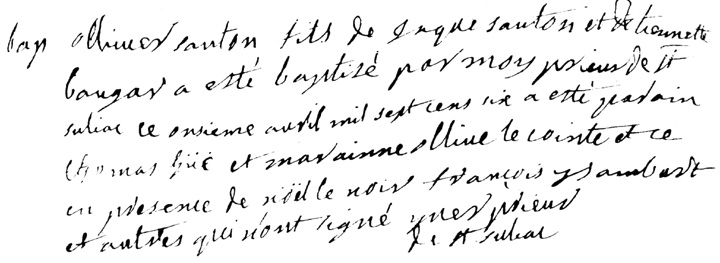 bap olliver santon fils de Jaque santon et de tiennette
baugar a esté baptisé par moy prieur de st
suliac ce onsieme avril mil sept cens six a esté parain
thomas hüe et marainne ollive le cointe et ce
en presence de noël le noir françois ysambart
et autres qui n'ont signé prieur
de st suliac